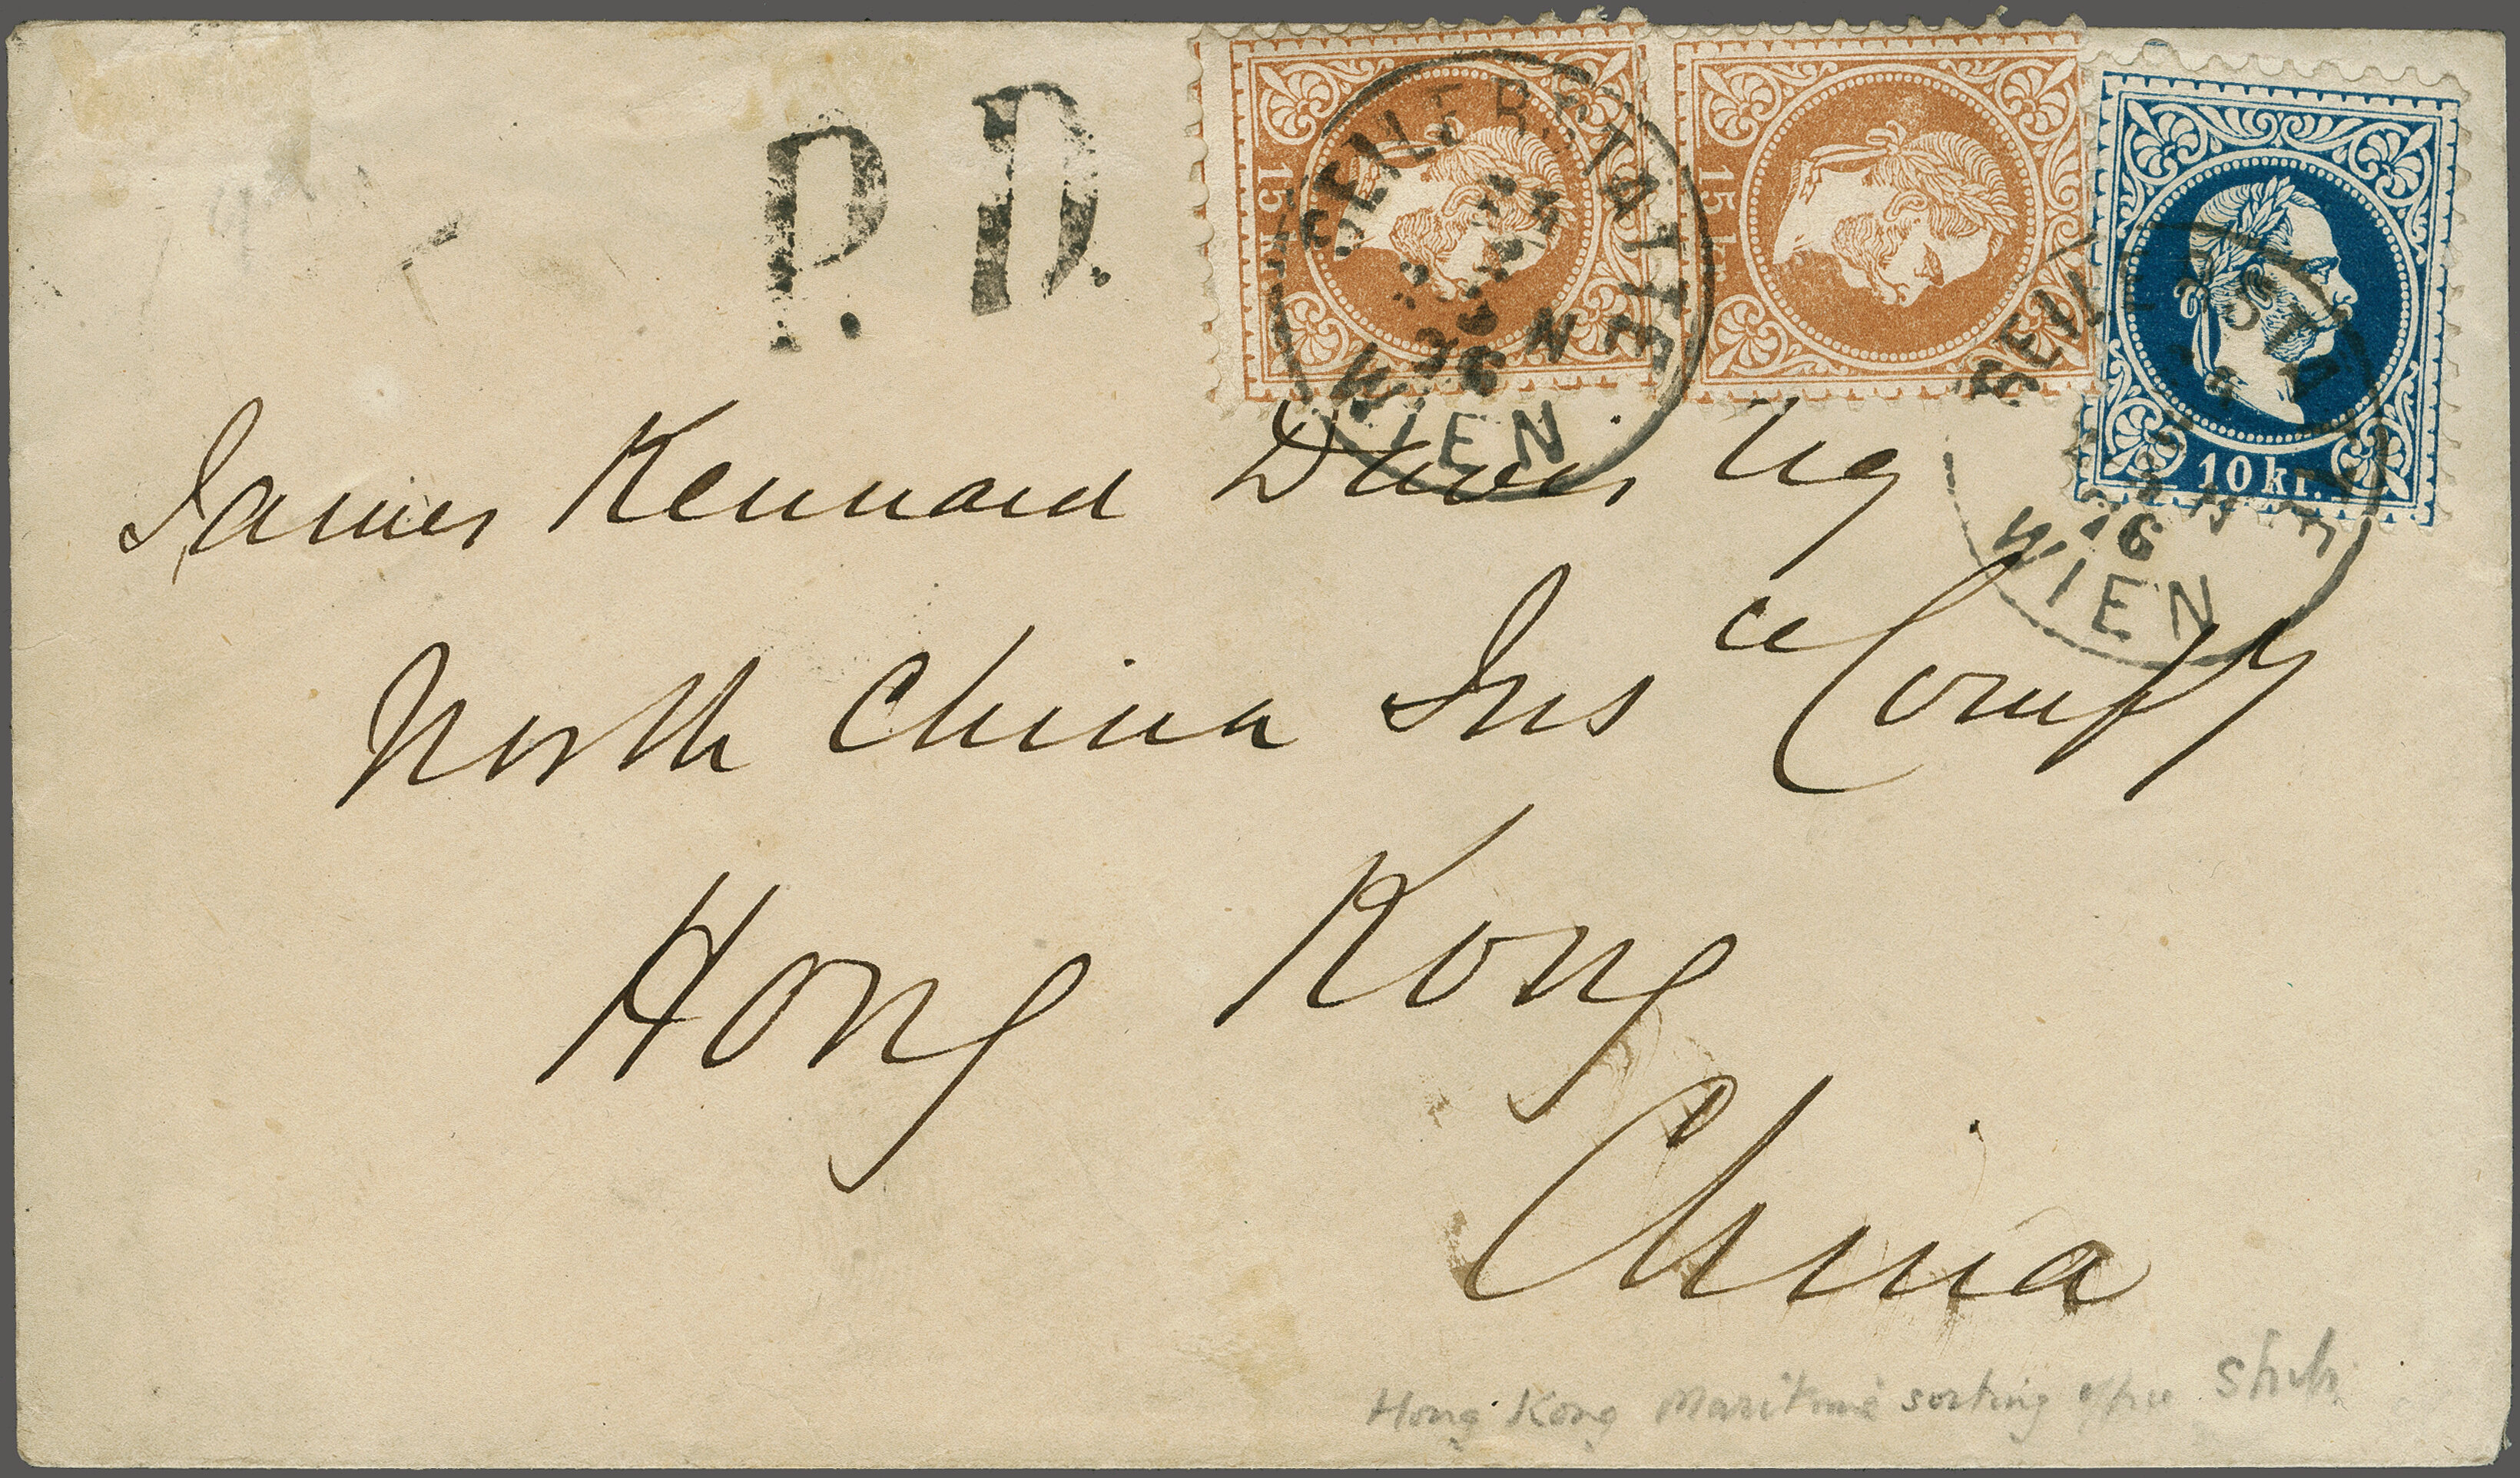 P. D.
15 kr.
15 kr.
10 kr.
SEILERSTÄTTE
WIEN
WIEN
James Kennard Davis
North China Ins ce Compy
Hong Kong
China
Hong Kong Maritime sorting office